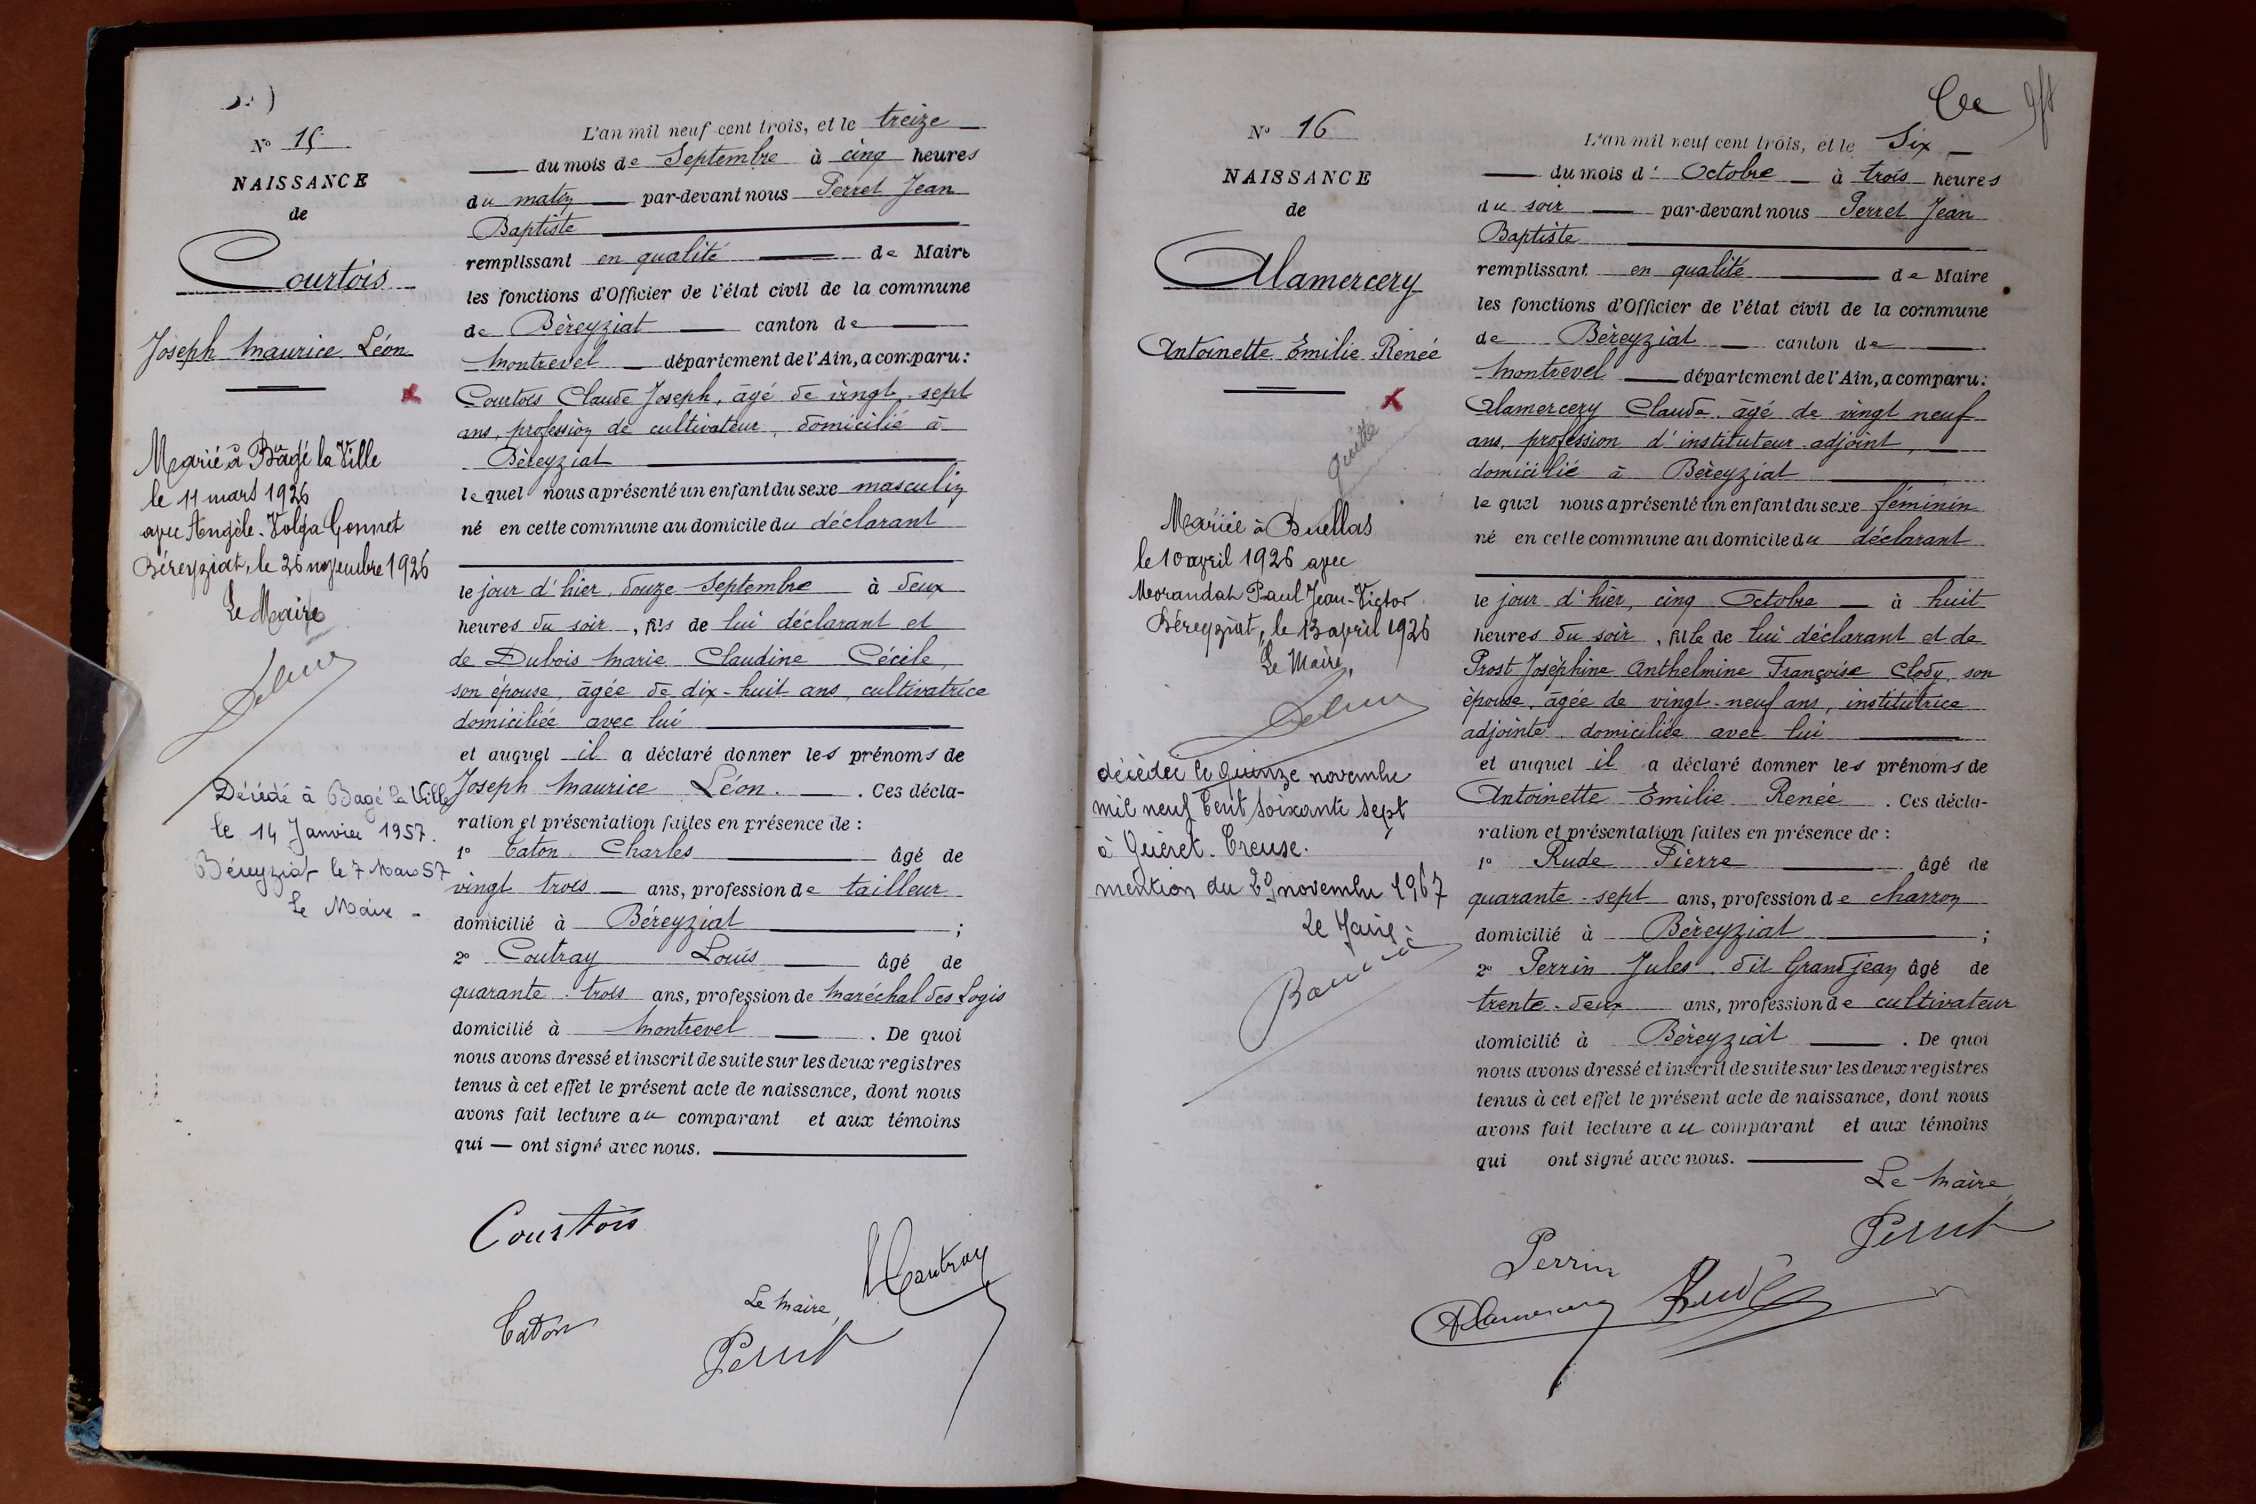 N° 15
NAISSANCE
de
Courtois
Joseph Maurice Léon
Marié à Bagé la Ville
le 11 mars 1926
avec Angèle-Volga Connet
Béreyziat, le 26 novembre 1926
Le Maire
Décédé à Bagé la Ville
le 14 Janvier 1957.
Béreyziat le 7 Mars 57
Le Maire -
L'an mil neuf cent trois, et le treize
du mois de Septembre à cinq heures
du matin par-devant nous Perret Jean
Baptiste
remplissant en qualité de Maire
les fonctions d'Officier de l'état civil de la commune
de Béreyziat canton de
Montrevel département de l'Ain, a comparu :
Courtois Claude Joseph, âgé de vingt-sept
ans, profession de cultivateur, domicilié à
Béreyziat
lequel nous a présenté un enfant du sexe masculin
né en cette commune au domicile du déclarant
le jour d'hier, douze Septembre à deux
heures du soir, fils de lui déclarant et
de Dubois Marie Claudine Cécile,
son épouse, âgée de dix-huit ans, cultivatrice
domiciliée avec lui
et auquel il a déclaré donner les prénoms de
Joseph Maurice Léon. Ces décla-
ration et présentation faites en présence de :
1° Caton Charles âgé de
vingt trois ans, profession de tailleur
domicilié à Béreyziat ;
2° Coutray Louis âgé de
quarante-trois ans, profession de Maréchal des Logis
domicilié à Montrevel. De quoi
nous avons dressé et inscrit de suite sur les deux registres
tenus à cet effet le présent acte de naissance, dont nous
avons fait lecture au comparant et aux témoins
qui — ont signé avec nous.
Courtois
Coutray
Caton
Le Maire,
Perret
N° 16
NAISSANCE
de
Alamercery
Antoinette Emilie Renée
Mariée à Buellas
le 10 avril 1926 avec
Morandat Paul Jean-Victor
Béreyziat, le 13 avril 1926
Le Maire,
décédée le quinze novembre
mil neuf cent soixante sept
à Guéret. Creuse.
mention du 29 novembre 1967
Le Maire
L'an mil neuf cent trois, et le Six
du mois d'Octobre à trois heures
du soir par-devant nous Perret Jean
Baptiste
remplissant en qualité de Maire
les fonctions d'Officier de l'état civil de la commune
de Béreyziat canton de
Montrevel département de l'Ain, a comparu :
Alamercery Claude, âgé de vingt neuf
ans, profession d'instituteur-adjoint,
domicilié à Béreyziat
lequel nous a présenté un enfant du sexe féminin
né en cette commune au domicile du déclarant
le jour d'hier, cinq Octobre à huit
heures du soir, fille de lui déclarant et de
Prost Joséphine Anthelmine Françoise Clody, son
épouse, âgée de vingt-neuf ans, institutrice
adjointe domiciliée avec lui
et auquel il a déclaré donner les prénoms de
Antoinette Emilie Renée. Ces décla-
ration et présentation faites en présence de :
1° Rude Pierre âgé de
quarante-sept ans, profession de charron
domicilié à Béreyziat ;
2° Perrin Jules dit Grandjean âgé de
trente-deux ans, profession de cultivateur
domicilié à Béreyziat. De quoi
nous avons dressé et inscrit de suite sur les deux registres
tenus à cet effet le présent acte de naissance, dont nous
avons fait lecture au comparant et aux témoins
qui ont signé avec nous.
Le Maire,
Perret
Perrin
Alamercery Rude